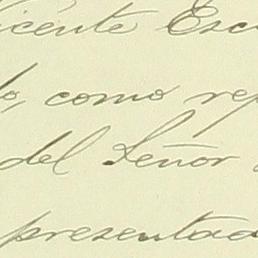 icente Esc
do, como rep
del Señor
presentad